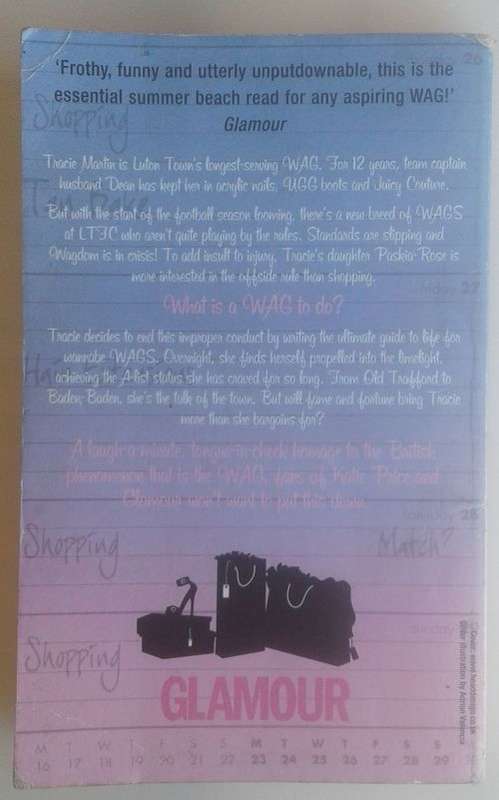 26
'Frothy, funny and utterly unputdownable, this is the
essential summer beach read for any aspiring WAG!'
Glamour
Shopping
Tracie Martin is Luton Town's longest-serving WAG. For 12 years, team captain
husband Dean has kept her in acrylic nails, UGG boots and Juicy Couture.
But with the start of the football season looming, there's a new breed of WAGS
at LTFC who aren't quite playing by the rules. Standards are slipping and
Wagdom is in crisis! To add insult to injury, Tracie's daughter Paskia-Rose is
more interested in the offside rule than shopping.
27
What is a WAG to do?
Tracie decides to end this improper conduct by writing the ultimate guide to life for
wannabe WAGS. Overnight, she finds herself propelled into the limelight,
achieving the A-list status she has craved for so long. From Old Trafford to
Baden-Baden, she's the talk of the town. But will fame and fortune bring Tracie
more than she bargains for?
A laugh-a-minute, tongue-in-cheek homage to the British
phenomenon that is the WAG, fans of Katie Price and
Glamour won't want to put this down.
saturday 28
Shopping
Match?
sunday
Shopping
GLAMOUR
M T W T F S S M T W T F S S
16 17 18 19 20 21 22 23 24 25 26 27 28 29
Cover: www.headdesign.co.uk
Cover illustration by Adrian Valencia